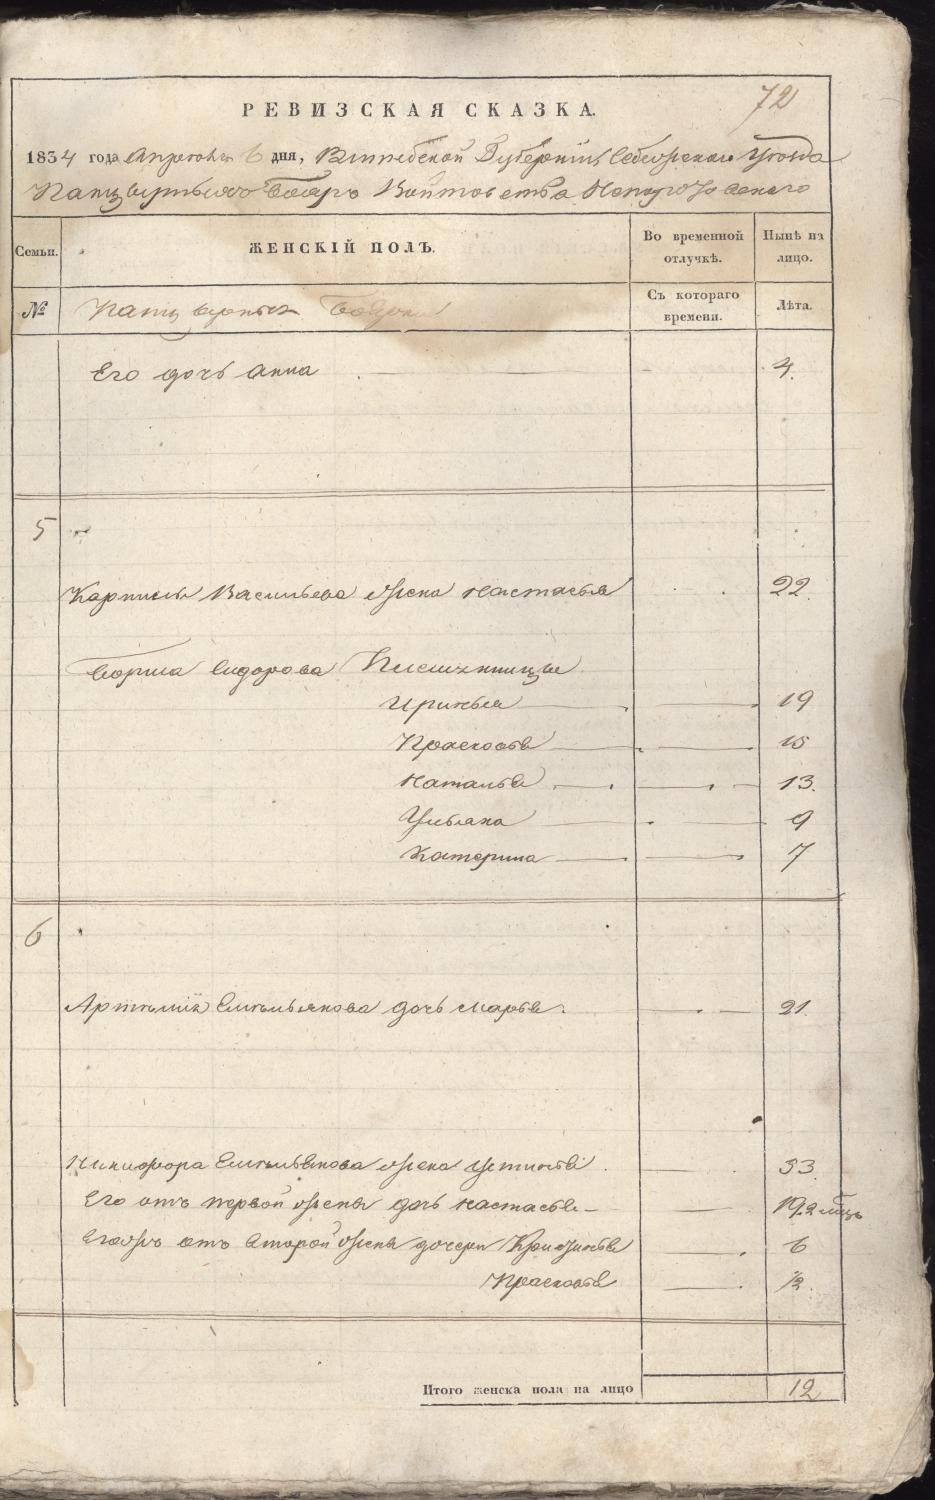 72
РЕВИЗСКАЯ СКАЗКА.
1834 года Апреля 6 дня, Витебской Губернии, Себежского Уезда
Панцырныхъ Бояръ Войтовства
Семьи. ЖЕНСКІЙ ПОЛЪ. Во временной отлучкѣ. Нынѣ на лицо.
№ Панцырныхъ Бояръ Съ котораго времени. Лѣта.
Его дочь Анна 4.
5
Васильева жена Настасья 22
Бориса Сидорова Племянницы
Иринья 19
Прасковья 15
Наталья 13.
Ульяна 9
Катерина 7
6
Артемія Емельянова дочь Марья 21.
Никифора Емельянова жена Устинья 33
Его отъ первой жены дочь Настасья 19.
Егожъ отъ второй жены дочери 6
Прасковья 1/2.
Итого женска пола на лицо 12